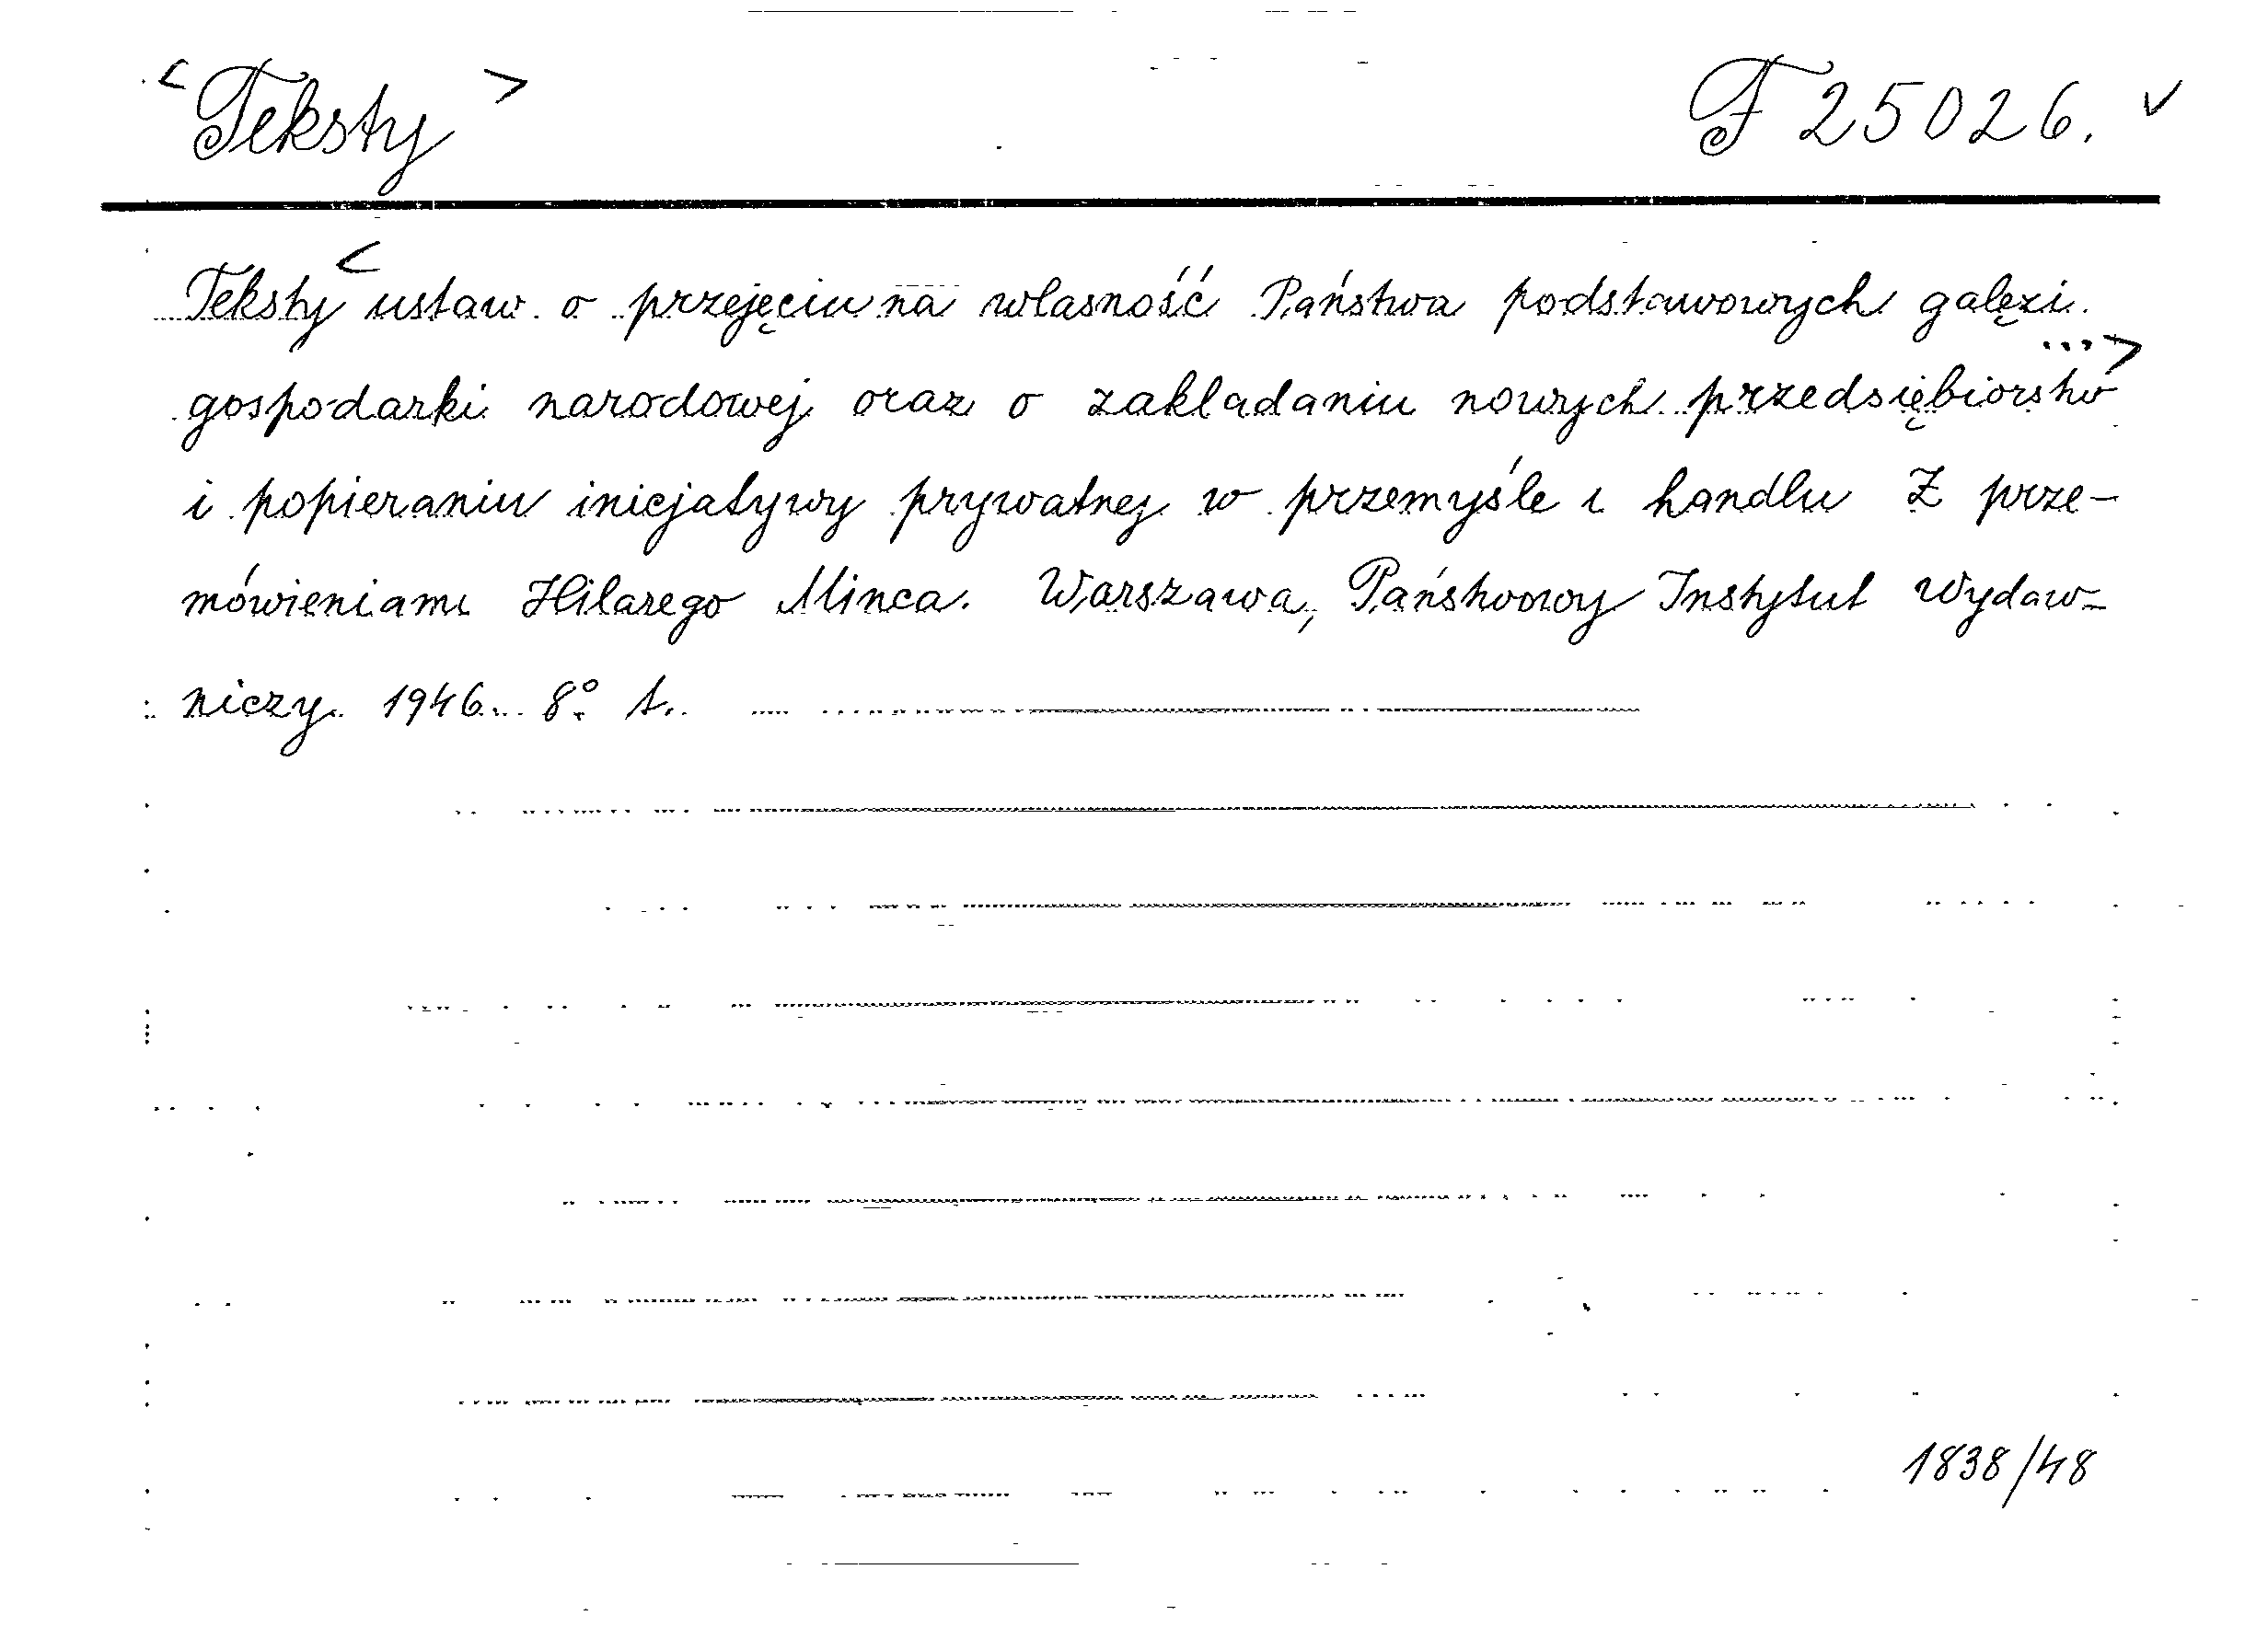 < Teksty > F 25026. ✓
Teksty < ustaw o przejęciu na własność Państwa podstawowych gałęzi
gospodarki narodowej oraz o zakładaniu nowych przedsiębiorstw ...>
i popieraniu inicjatywy prywatnej w przemyśle i handlu Z prze-
mówieniami Hilarego Minca. Warszawa, Państwowy Instytut Wydaw-
niczy. 1946. 8° s.
1838/48